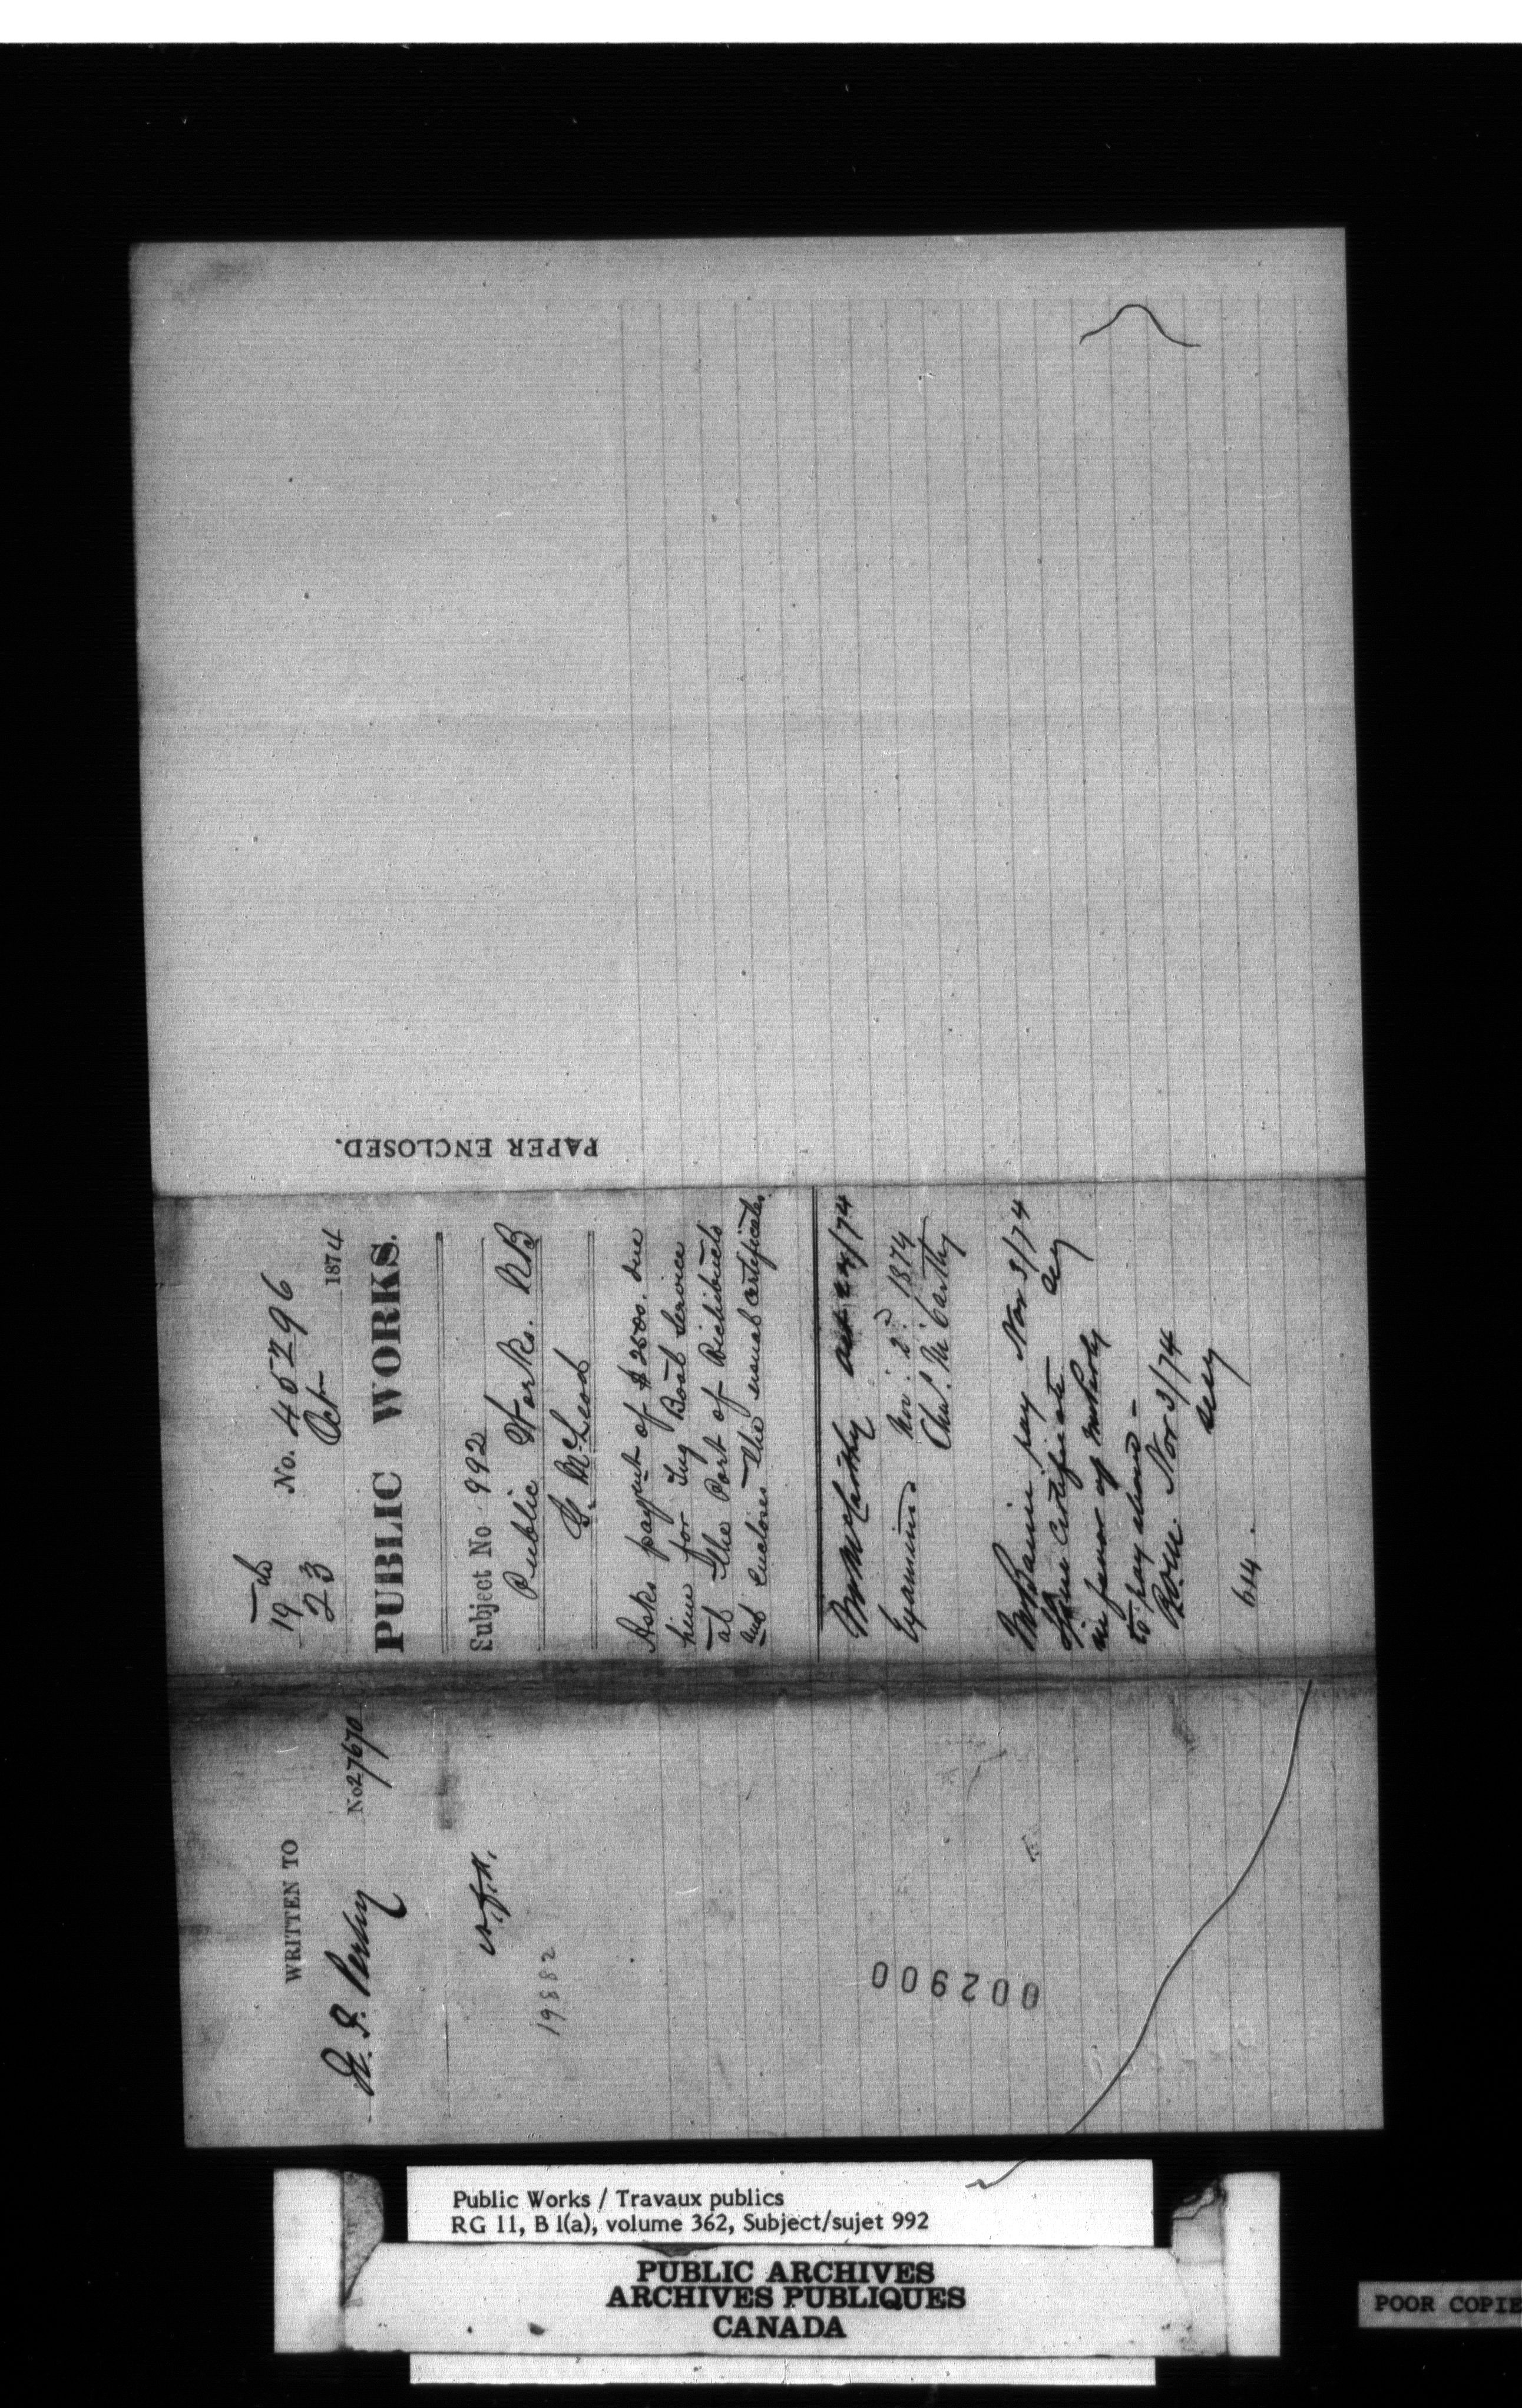 19th
23
No. 45296
Octr 1874
PUBLIC WORKS.
Subject No 992
Public Works. NB
G. McLeod
Asks paym̲nt of $2500. due
him for Tug Boat Service
at the Port of Richibucto
and encloses the usual certificates.
Mr McCarthy Oct 24/74
Examined Nov. 2d. 1874
Chs. McCarthy
Mr Bain pay Nov 3/74
Issue Certificate
in favor of
to pay
Nov 3/74
Secy
614.
WRITTEN TO
No 27670
W. P. Perley
19882
002900
PAPER ENCLOSED.
Public Works / Travaux publics
RG 11, B 1(a), volume 362, Subject/sujet 992
PUBLIC ARCHIVES
ARCHIVES PUBLIQUES
CANADA
POOR COPIE